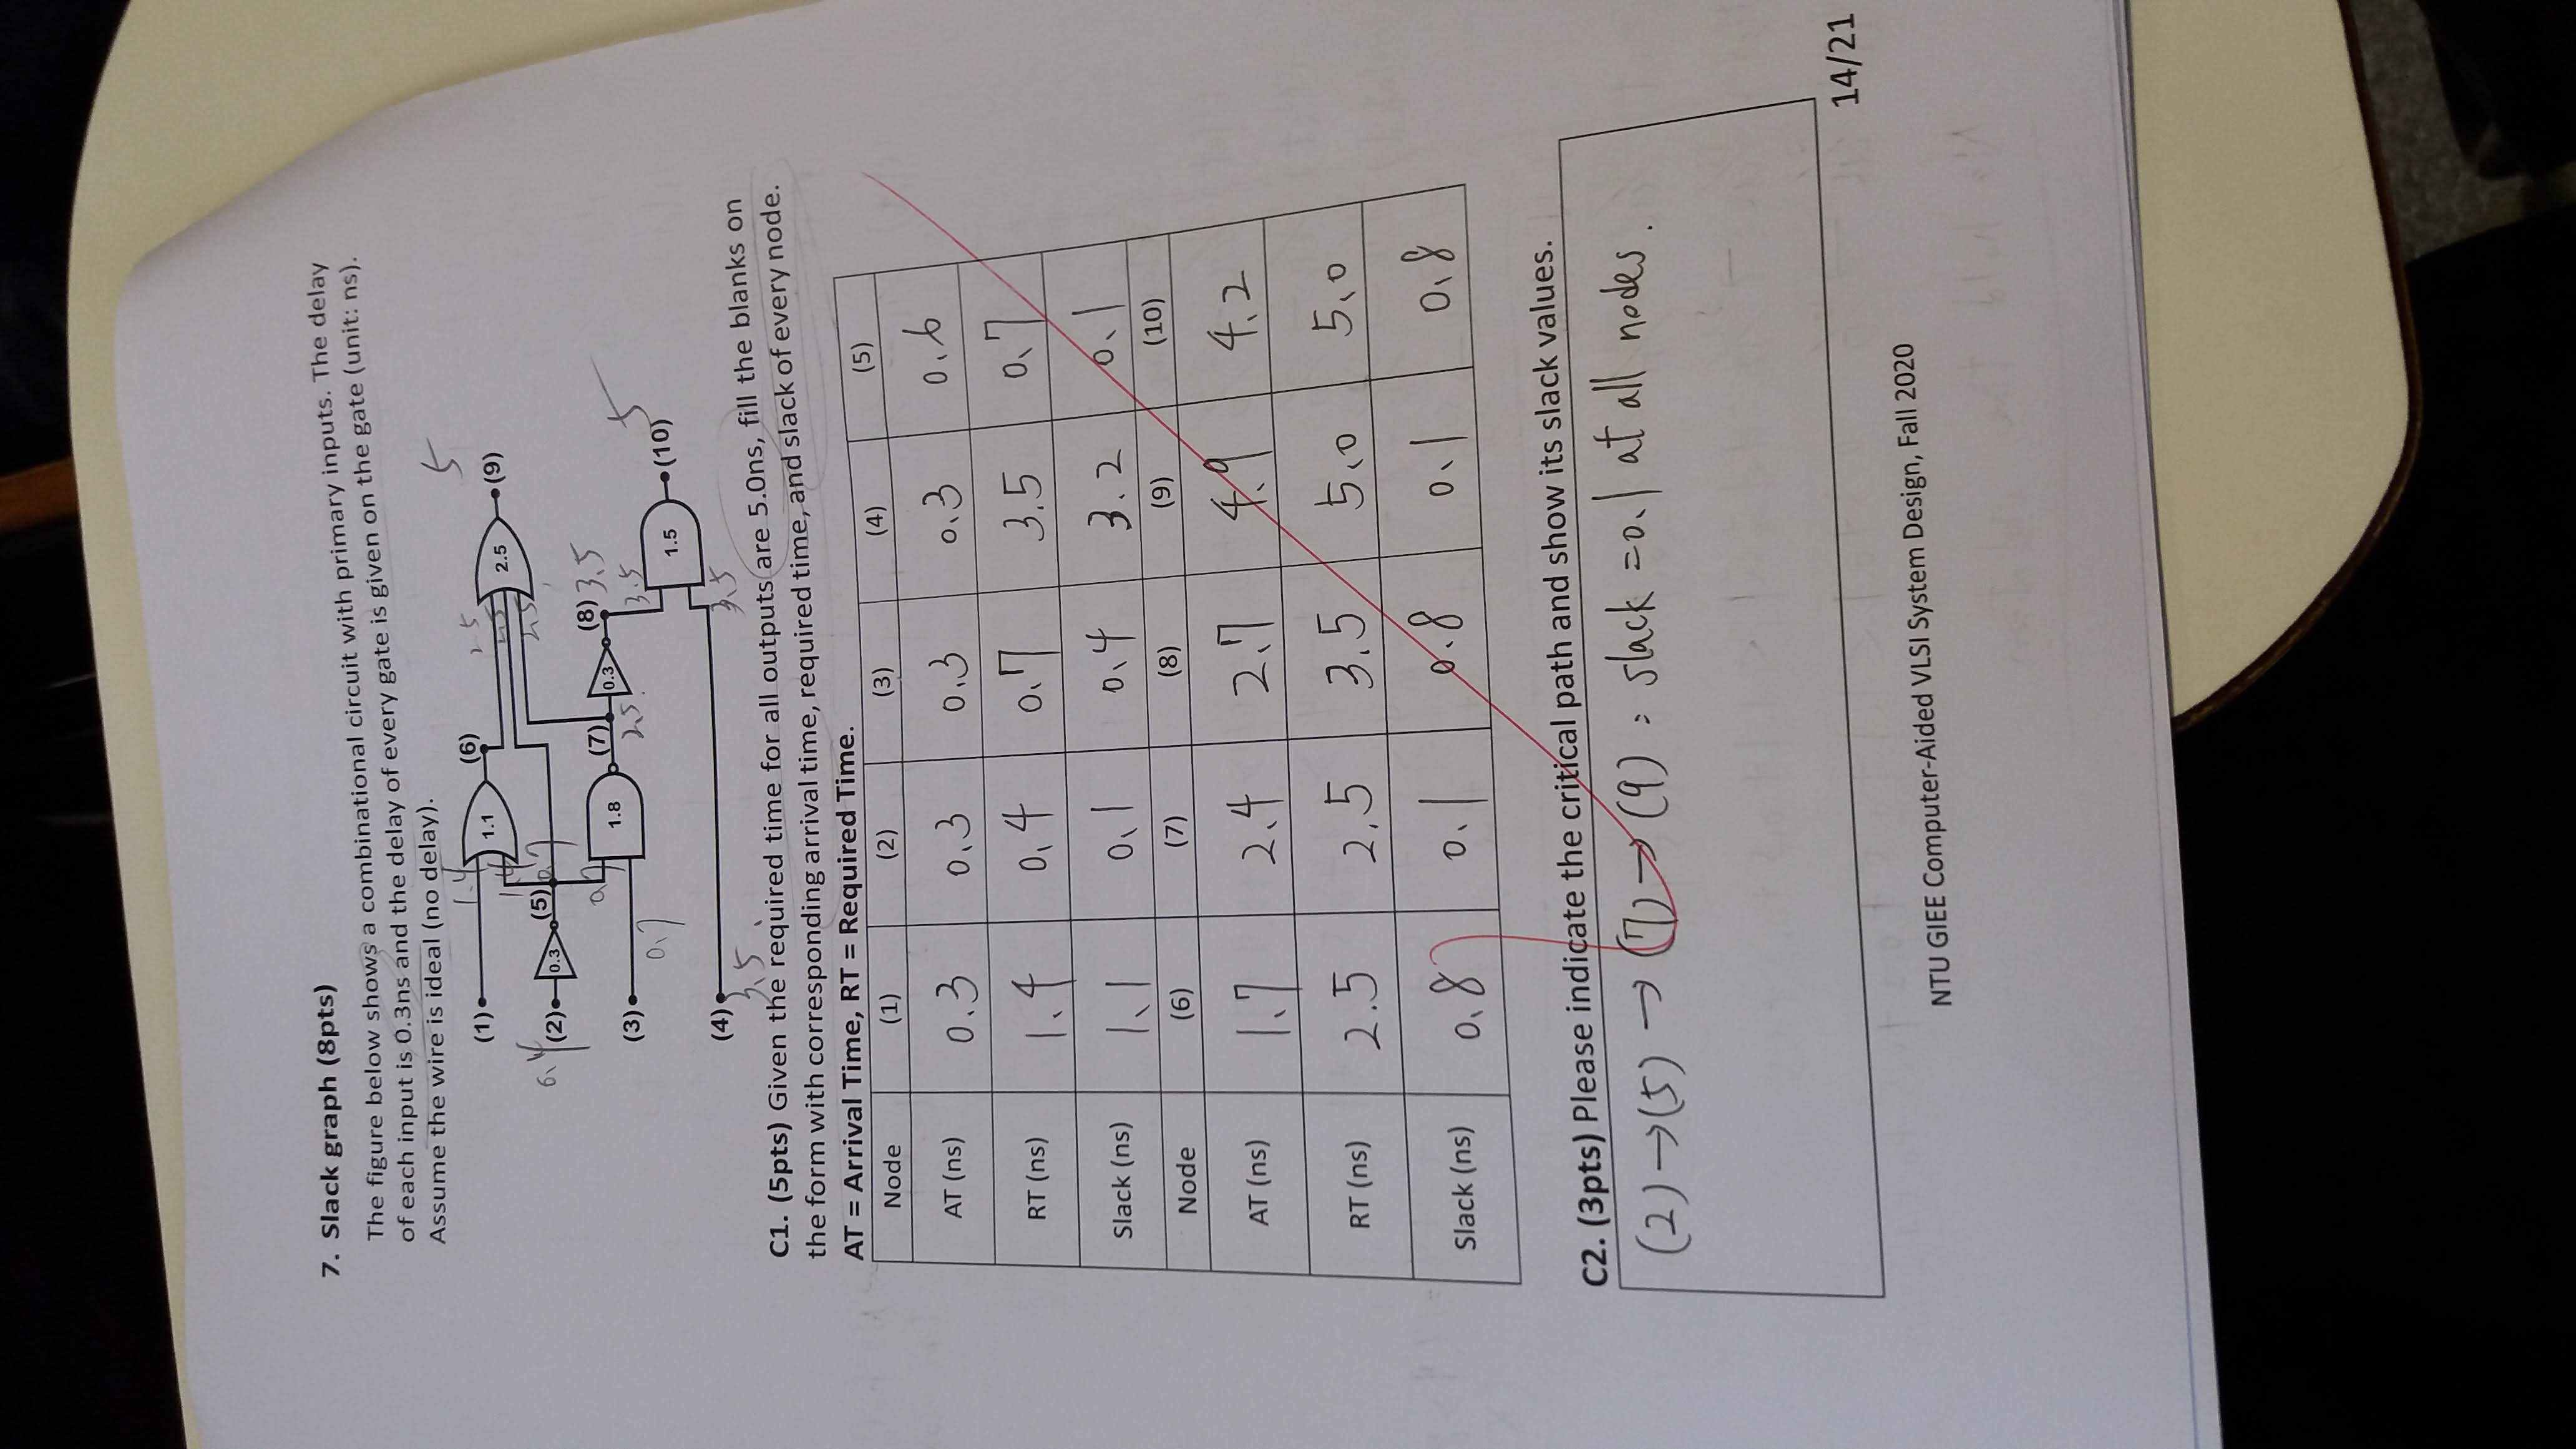 7. Slack graph (8pts)
The figure below shows a combinational circuit with primary inputs. The delay
of each input is 0.3ns and the delay of every gate is given on the gate (unit: ns).
Assume the wire is ideal (no delay).
5
(1) 1.4 1.1 (6) 2.5 2.5 (9)
1.4 2.5
0.4 (2) 0.3 (5) 0.7 2.5
0.7 1.8 (7) 0.3 (8) 3.5
(3) 2.5 3.5 5
0.7 1.5 (10)
(4) 3.5
3.5
C1. (5pts) Given the required time for all outputs are 5.0ns, fill the blanks on
the form with corresponding arrival time, required time, and slack of every node.
AT = Arrival Time, RT = Required Time.
Node (1) (2) (3) (4) (5)
AT (ns) 0.3 0.3 0.3 0.3 0.6
RT (ns) 1.4 0.4 0.7 3.5 0.7
Slack (ns) 1.1 0.1 0.4 3.2 0.1
Node (6) (7) (8) (9) (10)
AT (ns) 1.7 2.4 2.7 4.9 4.2
RT (ns) 2.5 2.5 3.5 5.0 5.0
Slack (ns) 0.8 0.1 0.8 0.1 0.8
C2. (3pts) Please indicate the critical path and show its slack values.
(2)→(5)→(7)→(9) : slack =0.1 at all nodes.
14/21
NTU GIEE Computer-Aided VLSI System Design, Fall 2020